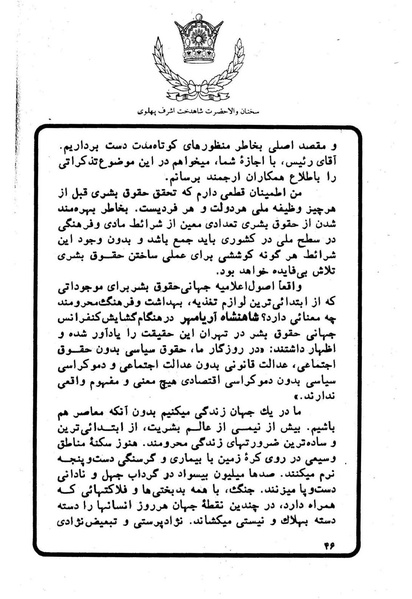 سخنان والاحضرت شاهدخت اشرف پهلوی
و مقصد اصلی بخاطر منظورهای کوتاه‌مدت دست برداریم.
آقای رئیس، با اجازهٔ شما، میخواهم در این موضوع تذکراتی
را باطلاع همکاران ارجمند برسانم.
من اطمینان قطعی دارم که تحقق حقوق بشری قبل از
هرچیز وظیفه ملی هردولت و هر فردیست. بخاطر بهره‌مند
شدن از حقوق بشری تعدادی معین از شرائط مادی وفرهنگی
در سطح ملی در کشوری باید جمع باشد و بدون وجود این
شرائط هر گونه کوششی برای عملی ساختن حقوق بشری
تلاش بی‌فایده خواهد بود.
واقعاً اصول اعلامیه جهانی حقوق بشر برای موجوداتی
که از ابتدائی‌ترین لوازم تغذیه، بهداشت وفرهنگ محرومند
چه معنائی دارد؟ شاهنشاه آریامهر درهنگام گشایش کنفرانس
جهانی حقوق بشر در تهران این حقیقت را یادآور شده و
اظهار داشتند: «در روزگار ما، حقوق سیاسی بدون حقوق
اجتماعی، عدالت قانونی بدون عدالت اجتماعی و دموکراسی
سیاسی بدون دموکراسی اقتصادی هیچ معنی و مفهوم واقعی
ندارند.»
ما در یك جهان زندگی میکنیم بدون آنکه معاصر هم
باشیم. بیش از نیمی از عالم بشریت، از ابتدائی‌ترین
و ساده‌ترین ضرورتهای زندگی محرومند. هنوز سکنهٔ مناطق
وسیعی در روی کرهٔ زمین با بیماری و گرسنگی دست‌وپنجه
نرم میکنند. صدها میلیون بیسواد در گرداب جهل و نادانی
دست‌وپا میزنند. جنگ، با همه بدبختی‌ها و فلاکتهائی که
همراه دارد، در چندین نقطهٔ جهان هرروز انسانها را دسته
دسته بهلاك و نیستی میکشاند. نژادپرستی و تبعیض‌نژادی
۴۶